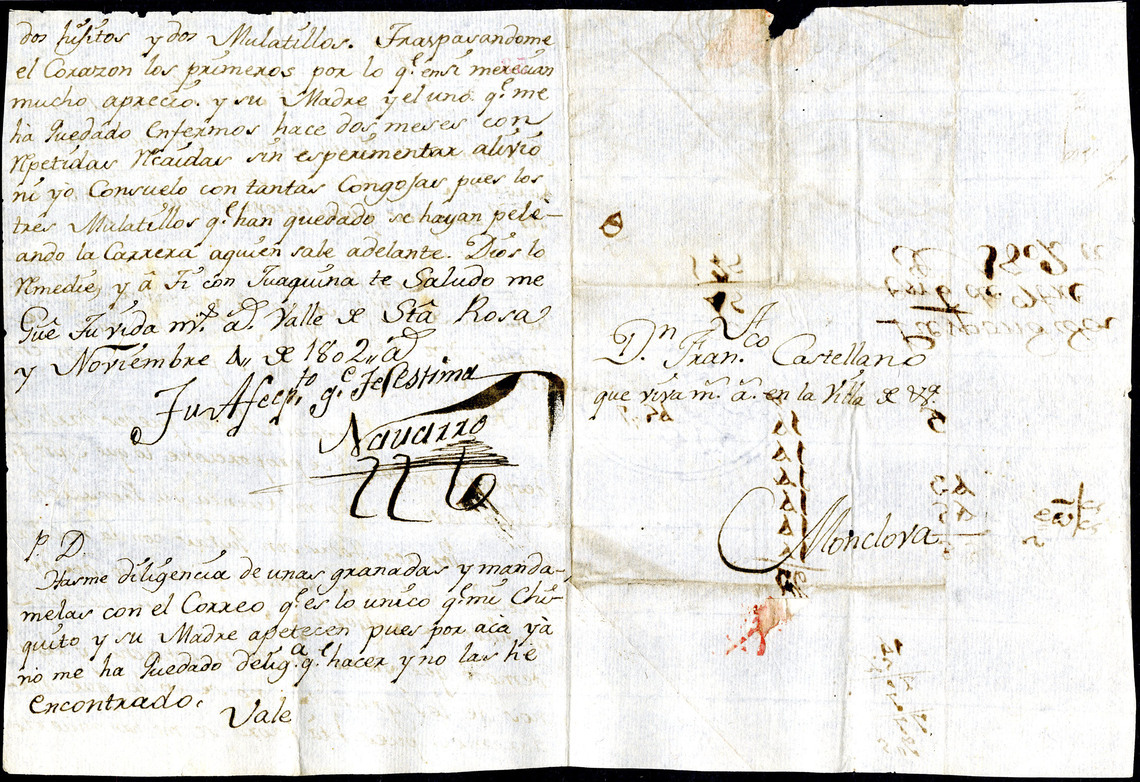 dos hijitos y dos Mulatillos. Traspasandome
el Corazon los primeros por lo q.e en si merecian
mucho aprecio. y su Madre y el uno q.e me
há Quedado Enfermos hace dos meses con
Repetidas Recaidas sin esperimentar alivio
ni yo Consuelo con tantas Congojas pues los
tres Mulatillos q.e han quedado se hayan pele-
ando la Carrera aquien sale adelante. Dios lo
Remedie, y â Ti con Juaquina te Saludo me
Gûe Tu vida m.s a.s Valle de Stâ Rosa
y Noviembre 4,, de 1802,, a.s
Tu Afecp.to q.e Te Estima
Navarro
P. D.
Hasme diligencia de unas granadas y manda-
melas con el Correo q.e es lo unico q.e mi Chi-
quito y su Madre apetecen pues por acà yà
no me ha Quedado delig.a q.e hacer y no las hé
encontrado.
Vale
Respondida
en 6 de Dbre
de 1802
D.n Fran.co Castellano
que viva m.s a.s en la Villa de
Monclova